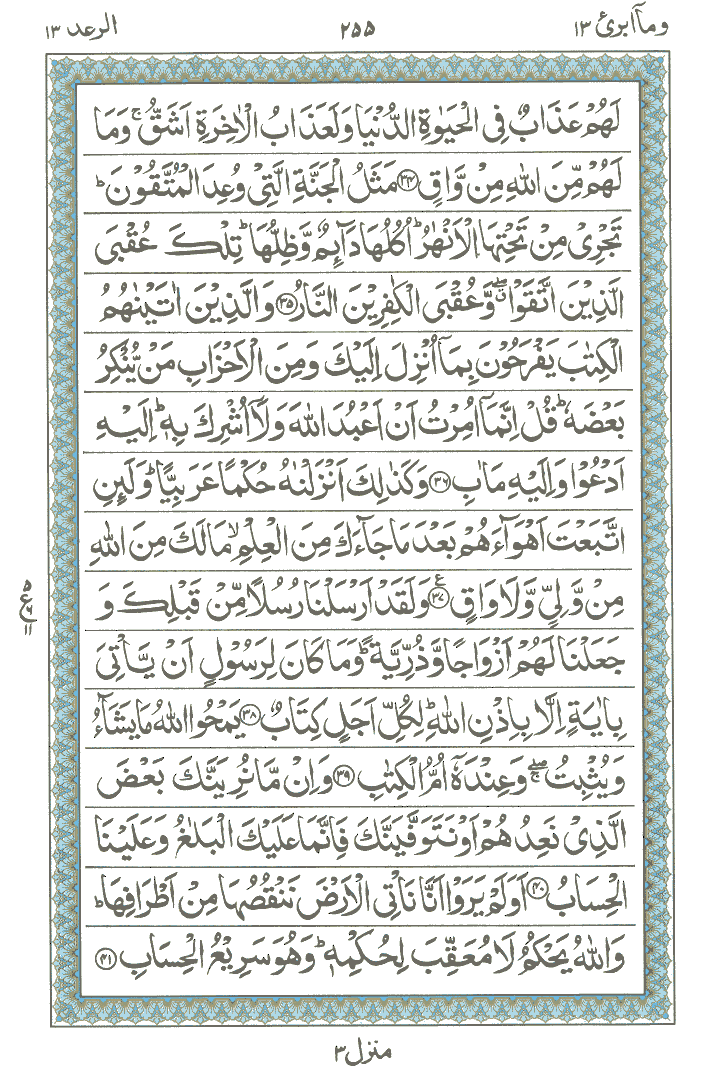 وما ابرئ ۱۳
۲۵۵
الرعد ۱۳
لَهُمْ عَذَابٌ فِی الْحَیٰوةِ الدُّنْیَا وَلَعَذَابُ الْاٰخِرَةِ اَشَقُّ ۚ وَمَا
لَهُمْ مِّنَ اللّٰهِ مِنْ وَّاقٍ ﴿۳۴﴾ مَثَلُ الْجَنَّةِ الَّتِیْ وُعِدَ الْمُتَّقُوْنَ ؕ
تَجْرِیْ مِنْ تَحْتِهَا الْاَنْهٰرُ ؕ اُكُلُهَا دَآىِٕمٌ وَّظِلُّهَا ؕ تِلْكَ عُقْبَی
الَّذِیْنَ اتَّقَوْا ۖۗ وَّعُقْبَی الْكٰفِرِیْنَ النَّارُ ﴿۳۵﴾ وَالَّذِیْنَ اٰتَیْنٰهُمُ
الْكِتٰبَ یَفْرَحُوْنَ بِمَاۤ اُنْزِلَ اِلَیْكَ وَمِنَ الْاَحْزَابِ مَنْ یُّنْكِرُ
بَعْضَهٗ ؕ قُلْ اِنَّمَاۤ اُمِرْتُ اَنْ اَعْبُدَ اللّٰهَ وَلَاۤ اُشْرِكَ بِهٖ ؕ اِلَیْهِ
اَدْعُوْا وَاِلَیْهِ مَاٰبِ ﴿۳۶﴾ وَكَذٰلِكَ اَنْزَلْنٰهُ حُكْمًا عَرَبِیًّا ؕ وَلَىِٕنِ
اتَّبَعْتَ اَهْوَآءَهُمْ بَعْدَ مَا جَآءَكَ مِنَ الْعِلْمِ ۙ مَا لَكَ مِنَ اللّٰهِ
مِنْ وَّلِیٍّ وَّلَا وَاقٍ ﴿۳۷﴾ ع وَلَقَدْ اَرْسَلْنَا رُسُلًا مِّنْ قَبْلِكَ وَ
جَعَلْنَا لَهُمْ اَزْوَاجًا وَّذُرِّیَّةً ؕ وَمَا كَانَ لِرَسُوْلٍ اَنْ یَّاْتِیَ
بِاٰیَةٍ اِلَّا بِاِذْنِ اللّٰهِ ؕ لِكُلِّ اَجَلٍ كِتَابٌ ﴿۳۸﴾ یَمْحُوا اللّٰهُ مَا یَشَآءُ
وَیُثْبِتُ ۖۚ وَعِنْدَهٗۤ اُمُّ الْكِتٰبِ ﴿۳۹﴾ وَاِنْ مَّا نُرِیَنَّكَ بَعْضَ
الَّذِیْ نَعِدُهُمْ اَوْ نَتَوَفَّیَنَّكَ فَاِنَّمَا عَلَیْكَ الْبَلٰغُ وَعَلَیْنَا
الْحِسَابُ ﴿۴۰﴾ اَوَلَمْ یَرَوْا اَنَّا نَاْتِی الْاَرْضَ نَنْقُصُهَا مِنْ اَطْرَافِهَا ؕ
وَاللّٰهُ یَحْكُمُ لَا مُعَقِّبَ لِحُكْمِهٖ ؕ وَهُوَ سَرِیْعُ الْحِسَابِ ﴿۴۱﴾
۵
ع ۶
۱۱
منزل ۳